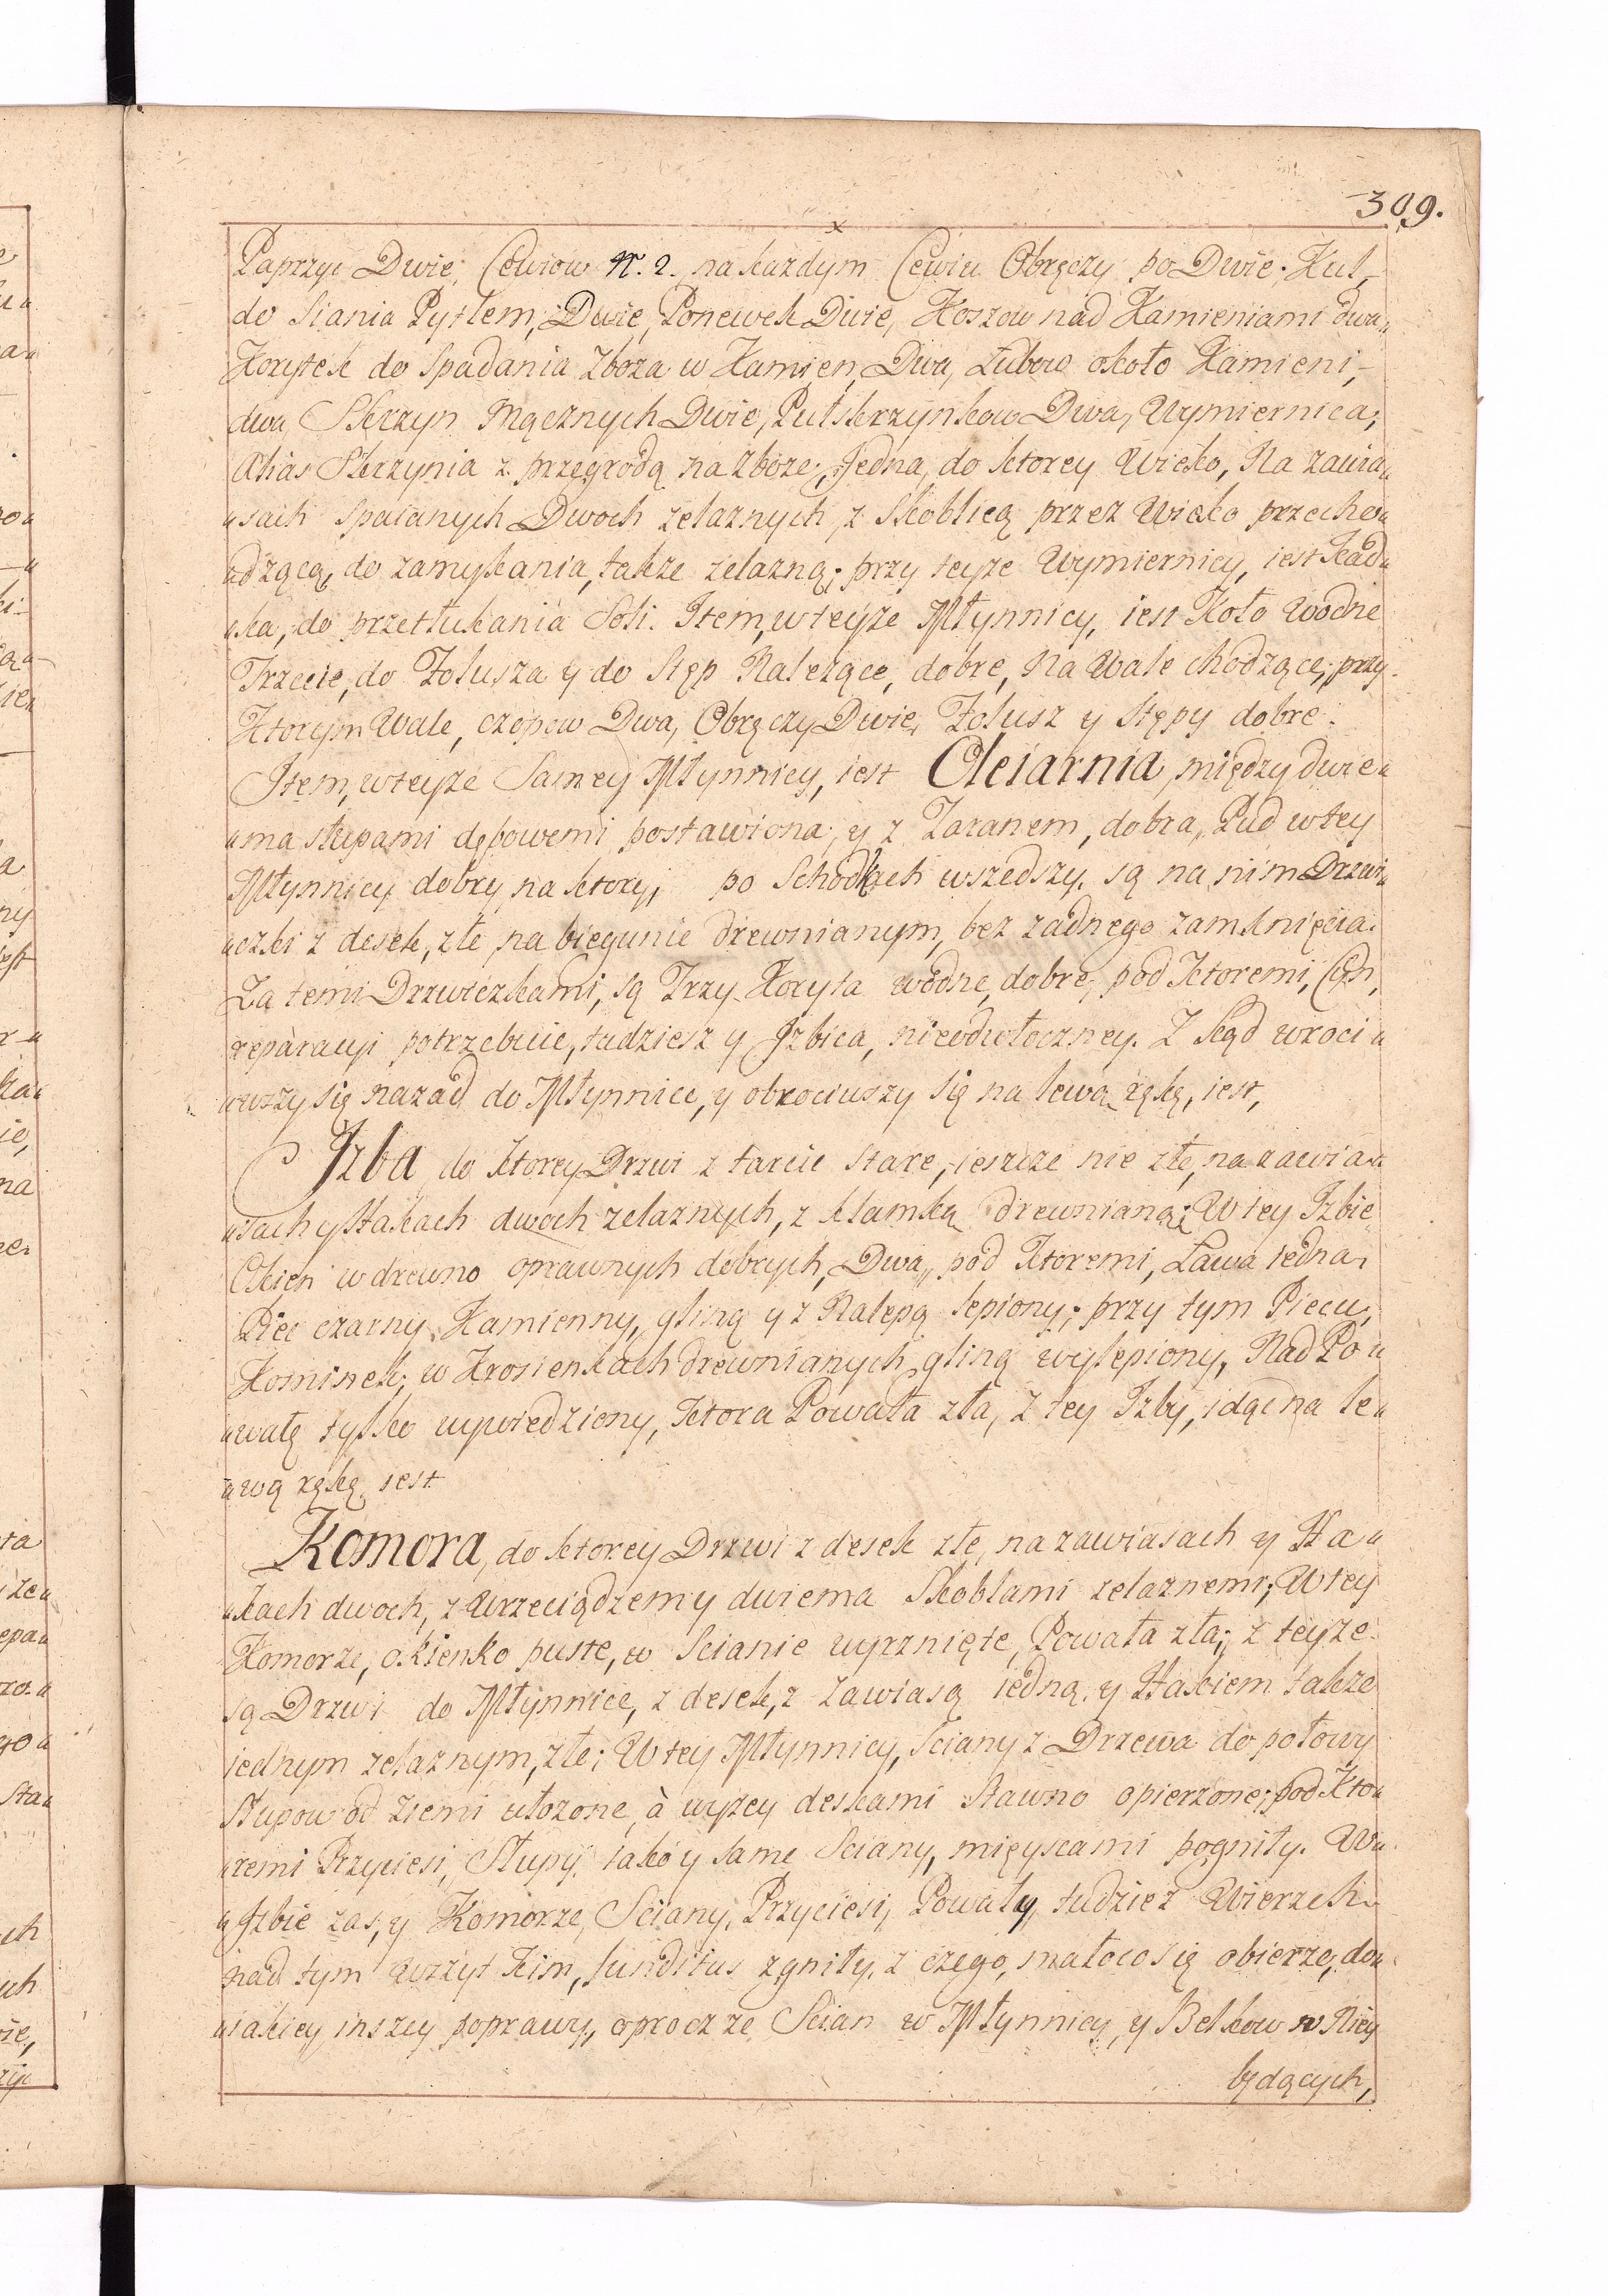 309.
Paprzyc Dwie, Cewiow N. 2. na kazdym Cewiu Obręczy po Dwie. Kul,
do Siania Pytlem, Dwie, Ponewek Dwie, Koszow nad Kamieniami dwa,
Korytek do Spadania Zboza w Kamien, Dwa, Lubow około Kamieni,
dwa, Skrzyn Mącznych Dwie, Pułskrzynkow Dwa, Wymiernica,
Alias Skrzynia z przegrodą na Zboze, Jedna, do ktorey Wieko, Na zawia„
„sach spaianych Dwoch zelaznych, z Skoblicą przez Wieko przecho„
„dzącą, do zamykania, takze zelazną; przy teyze Wymiernicy, iest Kad„
„ka, do przetłukania Soli. Item, w teyze Młynnicy, iest Koło Wodne
Trzecie, do Folusza y do Stęp Nalezące, dobre, Na Wale chodzące, przy
Ktorym Wale, czopow Dwa, Obręczy Dwie, Folusz y Stępy dobre.
Item, w teyze Samey Młynnicy, iest Oleiarnia, między dwie„
„ma słupami dębowemi postawiona, y z Taranem, dobra, Pud w tey
Młynnicy dobry, na ktory, po Schodkach wszedszy, są na nim Drzwi„
„czki z desek, złe, na biegunie drewnianym, bez zadnego zamknięcia.
Za temi Drzwiczkami, są Trzy Koryta wodne, dobre, pod Ktoremi,
reparacyi potrzebuie, tudziesz y Izbica, nieodwłoczney. Z tąd wroci„
„wszy się nazad do Młynnice, y obrociwszy się na lewą rękę, iest,
Izba, do ktorey Drzwi z tarcic stare, ieszcze nie złe, na zawia„
„sach y Hakach dwoch zelaznych, z klamką drewnianą; W tey Izbie
Okien w drewno oprawnych dobrych, Dwa, pod Ktoremi, Ława iedna,
Piec czarny, Kamienny, gliną y z Nalepą lepiony; przy tym Piecu,
Kominek, w Krosienkach drewnianych, gliną wylepiony, Nad Po„
„wałę tylko wywiedziony, Ktora Powała zła, Z tey Izby, idąc na le„
„wą rękę, iest
Komora, do ktorey Drzwi z desek złe, na zawiasach y Ha„
„kach dwoch, z Wrzeciądzem y dwiema Skoblami zelaznemi; W tey
Komorze, okienko puste, w Scianie wyrznięte, Powała zła; z teyze
są Drzwi do Młynnice, z desek, z zawiasą iedną, y Hakiem takze
iednym zelaznym, złe; W tey Młynnicy, Sciany z Drzewa do połowy
Słupow od ziemi ułozone, à wyzey deskami Stawno opierzone; pod Kto„
„remi Przyciesi, Słupy, iako y same Sciany, mieyscami pogniły. W„
„Izbie zas, y Komorze, Sciany, Przyciesi, Powały, tudziez Wierzch
nad tym Wszytkim, funditus zgniły, z czego, mało co się obierze, do„
„iakiey inszey poprawy, oprocz ze Scian w Młynnicy, y Belkow w Niey
będących,